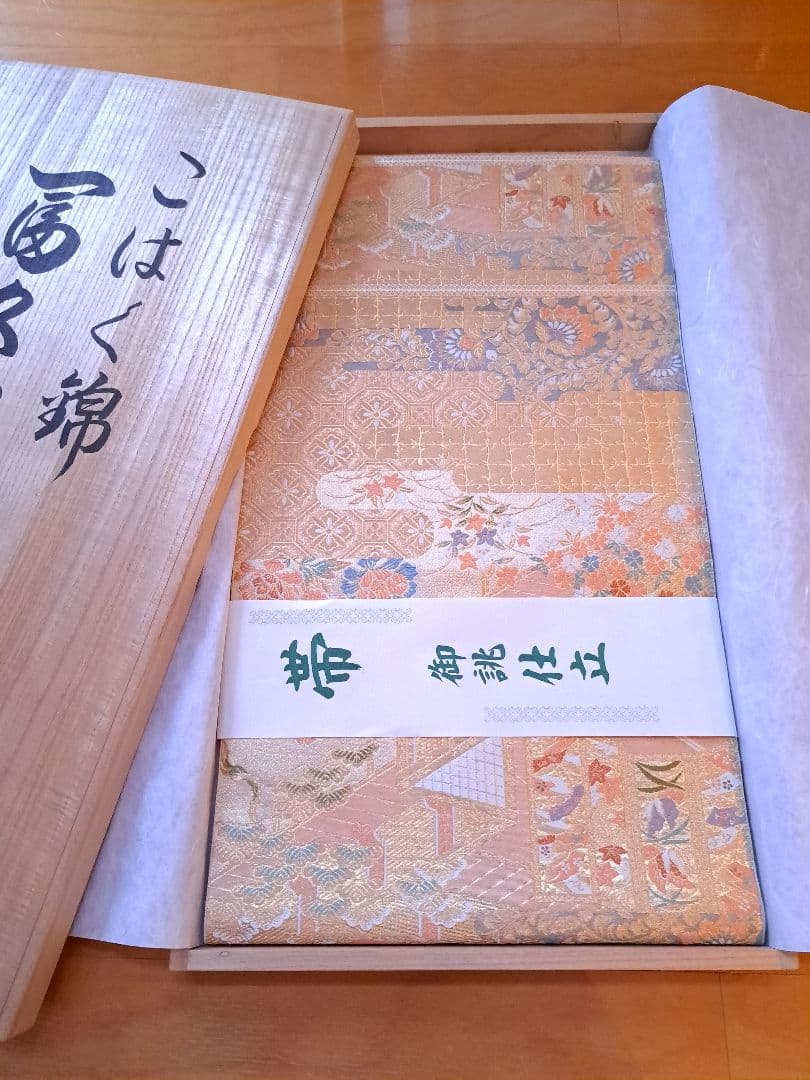 こはく錦
帯 御誂仕立